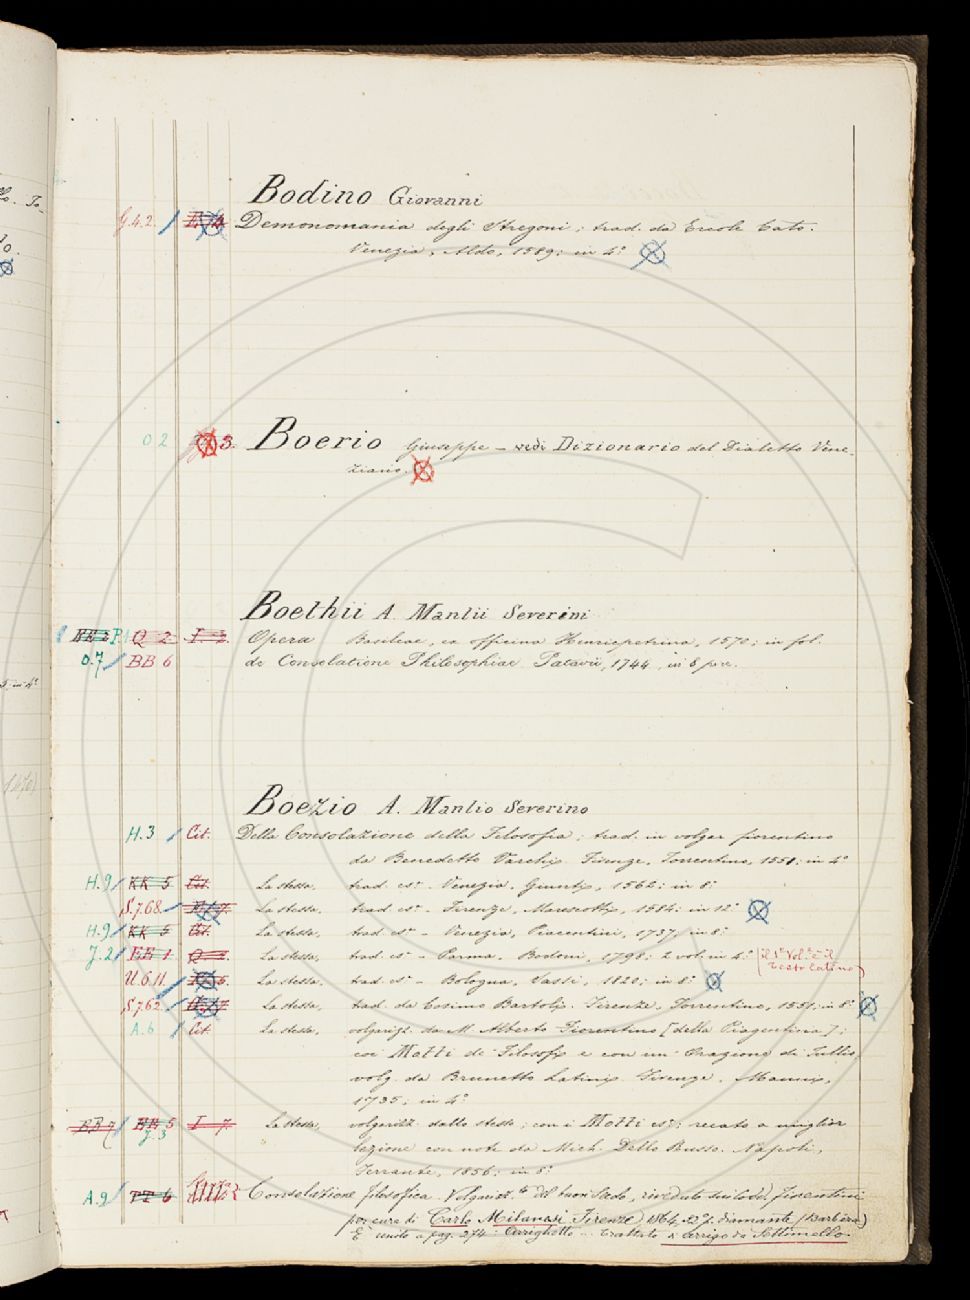 Bodino Giovanni
G.4.2. Demonomania degli Stregoni; trad. da Ercole Cato.
Venezia, Aldo, 1589; in 4°
O 2 3. Boerio Giuseppe – vedi Dizionario del Dialetto Vene-
ziano.
Boethii A. Manlii Severini
Q 2 Opera Basileae, ex officina Henricpetrina, 1570; in fol.
O.7 BB 6 de Consolatione Philosophiae Patavii, 1744, in 8
Boezio A. Manlio Severino
H.3 Cit. Della Consolazione della Filosofia; trad. in volgar fiorentino
da Benedetto Varchi. Firenze, Torrentino, 1551; in 4°
H.9 KK 5 Cit. La stessa, trad. csa. – Venezia, Giunti, 1562; in 8°
S.7.68. La stessa, trad. csa. – Firenze, Marescotti, 1584; in 12°
H.9 KK 5 Cit. La stessa, trad. csa. – Venezia, Piacentini, 1737, in 8°
J.2 EE 1 Q 2. La stessa, trad. csa. – Parma, Bodoni, 1798; 2 vol. in 4° (il 1° Vol. è il
testo latino)
U.6.11. La stessa, trad. csa. – Bologna, 1820; in 8°
S.7.62. La stessa, trad. da Cosimo Bartoli. Firenze, Torrentino, 1551; in 8°
A.6 Cit. La stessa, volgarizz. da M. Alberto Fiorentino [della Piagentina];
coi Motti de' Filosofi e con un' Orazione di Tullio,
volg. da Brunetto Latini. Firenze, Manni,
1735; in 4°
BB 7 HH 5 I 7 La stessa, volgarizz. dallo stesso; con i Motti csa.; recato a miglior
J.3
lezione con note da Mich. Dello Russo. Napoli,
Ferrante, 1856; in 8°
A.9 PP 6 Consolazione filosofica. Volgarizz.to del buon Secolo, riveduto sui codd. fiorentini
per cura di Carlo Milanesi Firenze, 1864, 32° f. diamante (Barbèra)
E' unito a pag. 274 Arrighetto – trattato di Arrigo da Settimello.